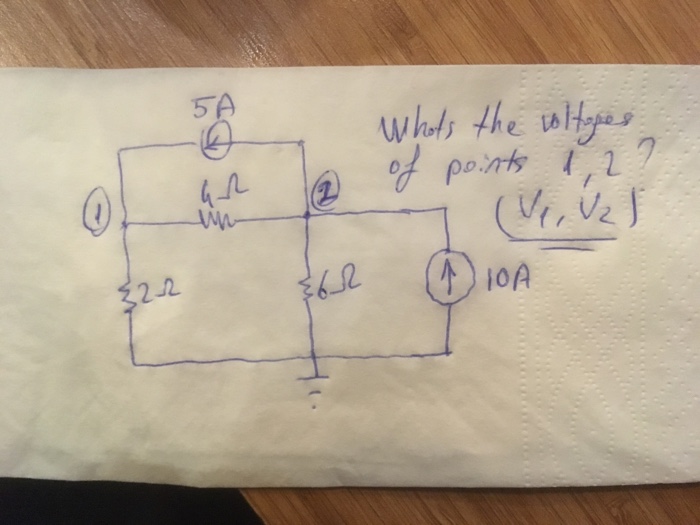 5A
Whats the voltages
of points 1,2?
(V₁, V₂)
4Ω
①
②
2Ω
6Ω
10A